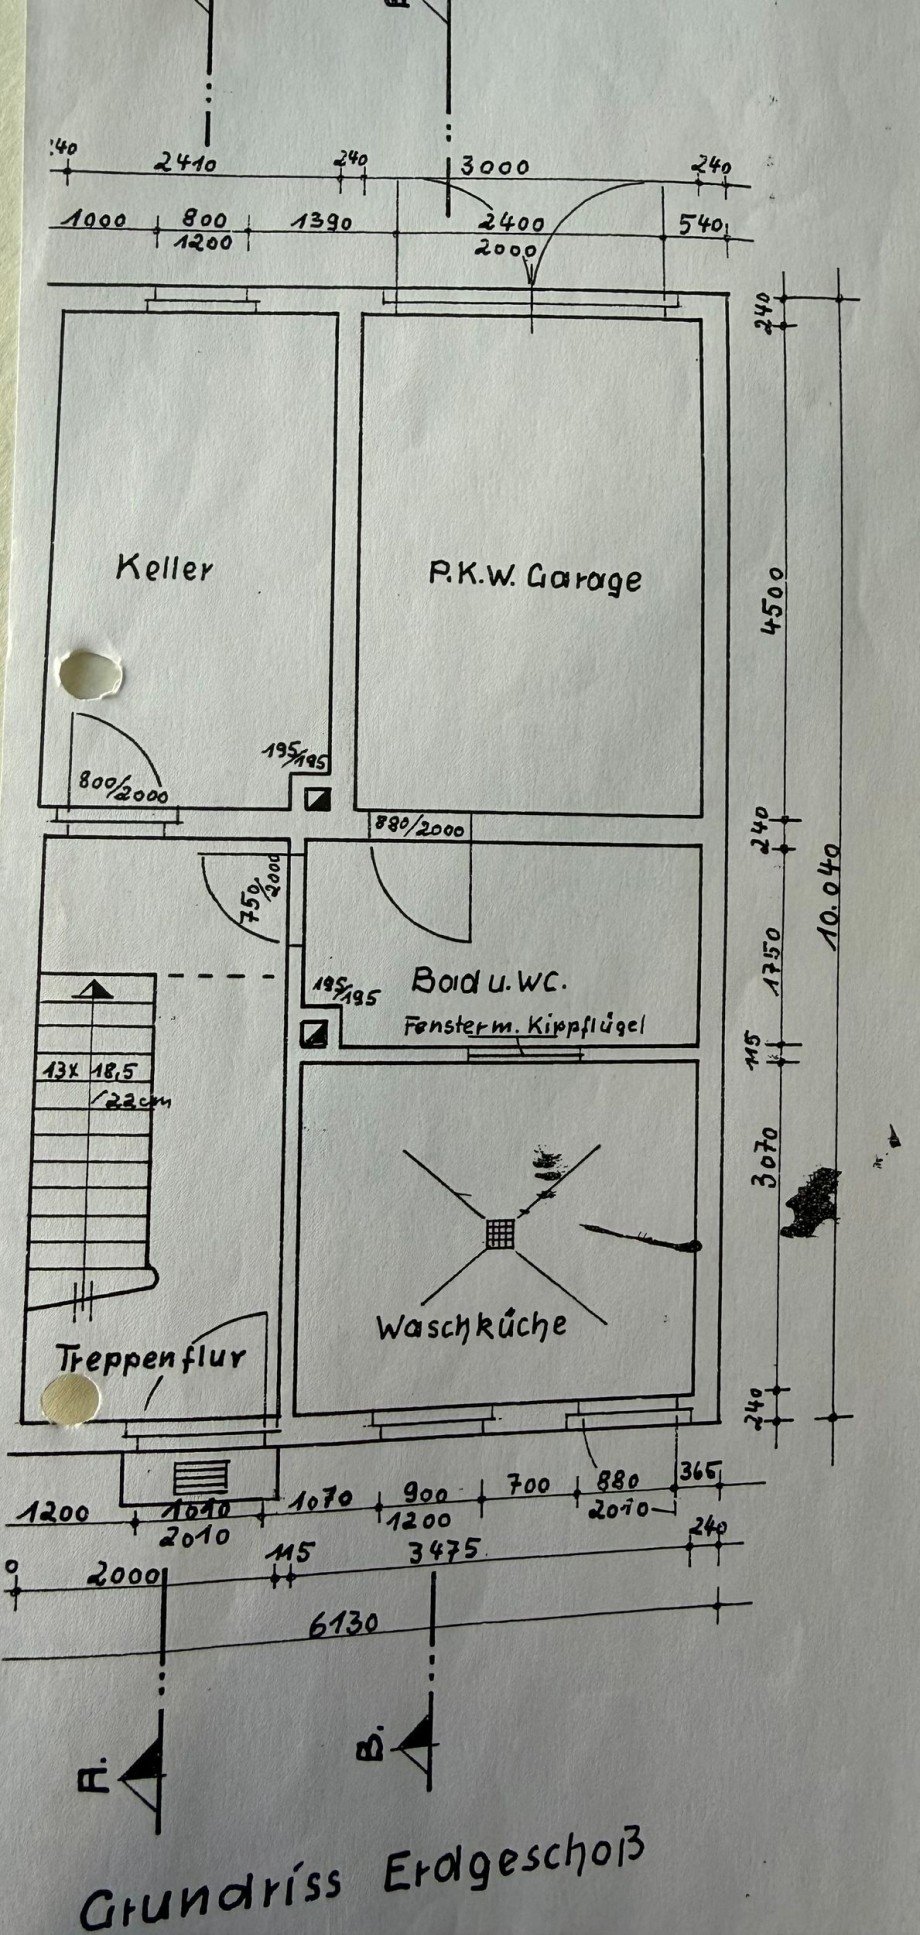 240 2410 240 3000 240
1000 800 1390 2400 540
1200 2000
240
4500
240
1750
115
3070
240
10.040
Keller
P.K.W. Garage
195/195
800/2000
880/2000
750/2000
195/195
Bad u. WC.
Fenster m. Kippflügel
13x 18,5
/22cm
Waschküche
Treppenflur
1200 1010 1070 900 700 880 365
2010 1200 2010
2000 115 3475 240
6130
A. B.
Grundriss Erdgeschoß